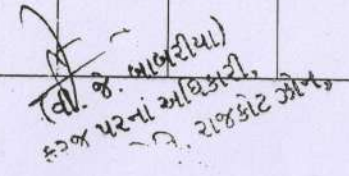 (વી. જે. બાબરીયા)
ફરજ પરનાં અધિકારી,
રાજકોટ ઝોન,